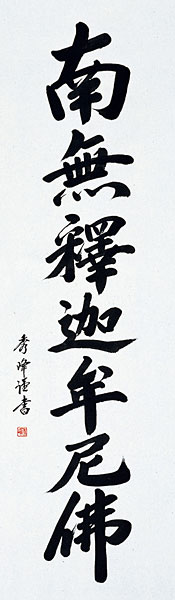 南無釋迦牟尼佛
秀峰謹書